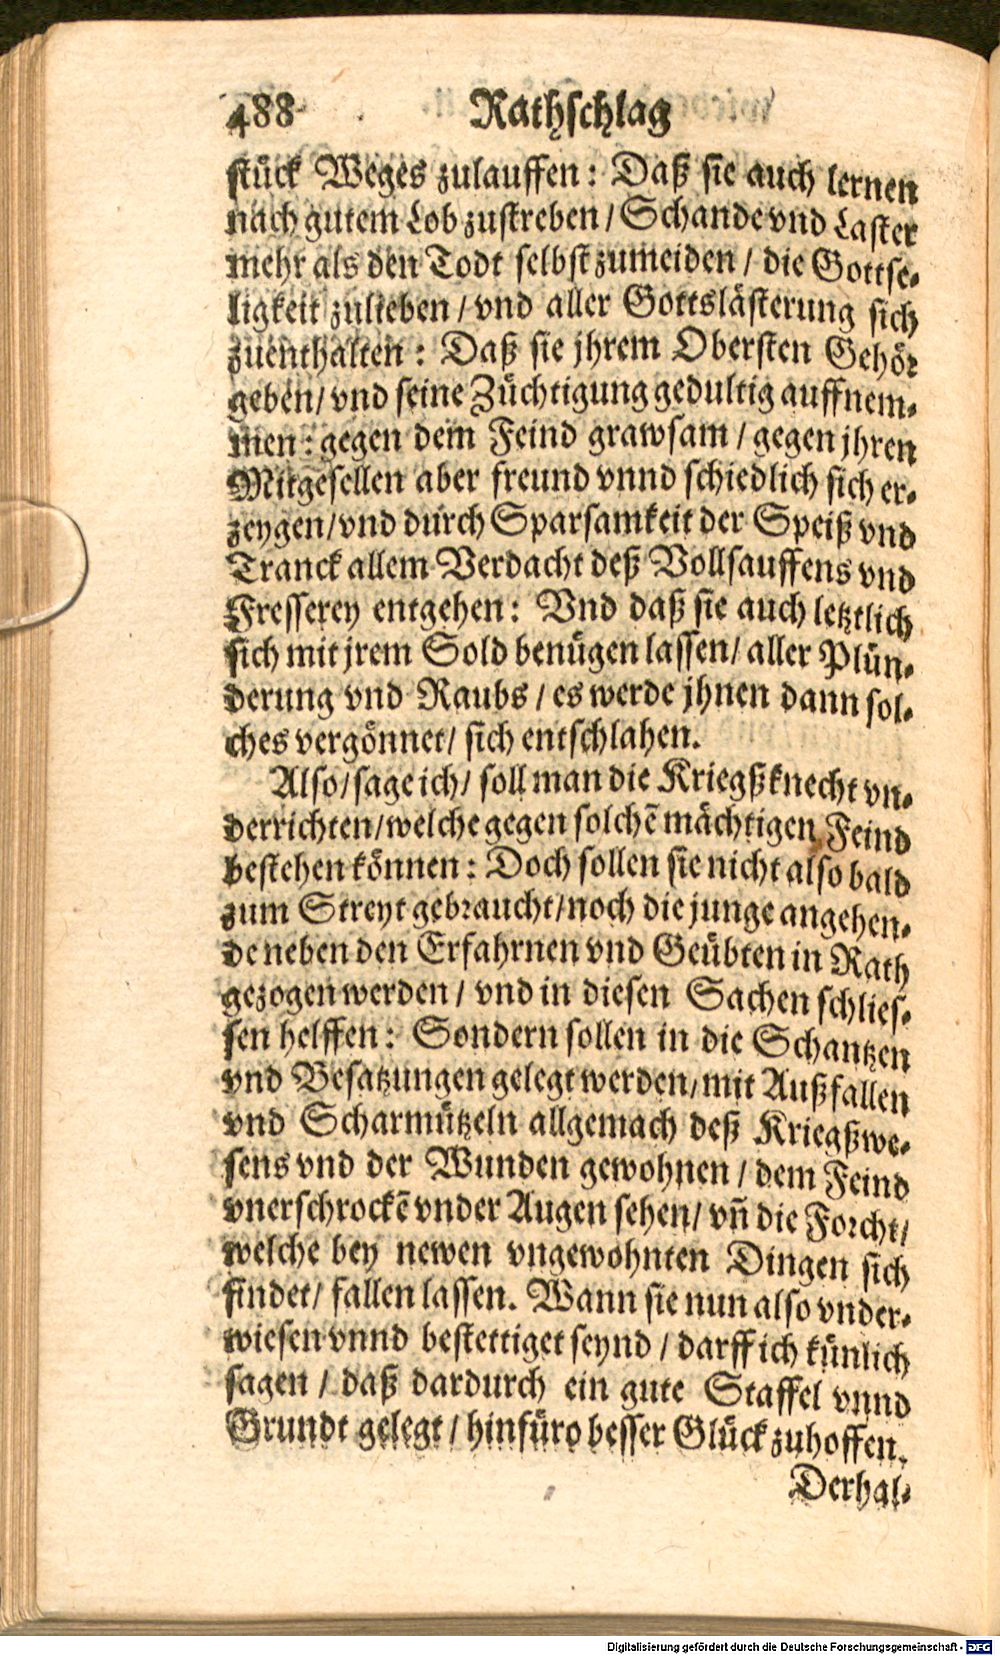 488 Rathschlag
stück Weges zulauffen: Daß sie auch lernen
nach gutem Lob zustreben / Schande vnd Laster
mehr als den Todt selbst zumeiden / die Gottse-
ligkeit zulieben / vnd aller Gottslästerung sich
zuenthalten: Daß sie jhrem Obersten Gehör
geben / vnd seine Züchtigung gedultig auffnem-
men: gegen dem Feind grawsam / gegen jhren
Mitgesellen aber freund vnnd schiedlich sich er-
zeygen / vnd durch Sparsamkeit der Speiß vnd
Tranck allem Verdacht deß Vollsauffens vnd
Fresserey entgehen: Vnd daß sie auch letztlich
sich mit jrem Sold benügen lassen / aller Plün-
derung vnd Raubs / es werde jhnen dann sol-
ches vergönnet / sich entschlahen.
Also / sage ich / soll man die Kriegßknecht vn-
derrichten / welche gegen solchẽ mächtigen Feind
bestehen können: Doch sollen sie nicht also bald
zum Streyt gebraucht / noch die junge angehen-
de neben den Erfahrnen vnd Geübten in Rath
gezogen werden / vnd in diesen Sachen schlies-
sen helffen: Sondern sollen in die Schantzen
vnd Besatzungen gelegt werden / mit Außfallen
vnd Scharmützeln allgemach deß Kriegßwe-
sens vnd der Wunden gewohnen / dem Feind
vnerschrockẽ vnder Augen sehen / vñ die Forcht /
welche bey newen vngewohnten Dingen sich
findet / fallen lassen. Wann sie nun also vnder-
wiesen vnnd bestettiget seynd / darff ich künlich
sagen / daß dardurch ein gute Staffel vnnd
Grundt gelegt / hinfüro besser Glück zuhoffen.
Derhal-
Digitalisierung gefördert durch die Deutsche Forschungsgemeinschaft - DFG